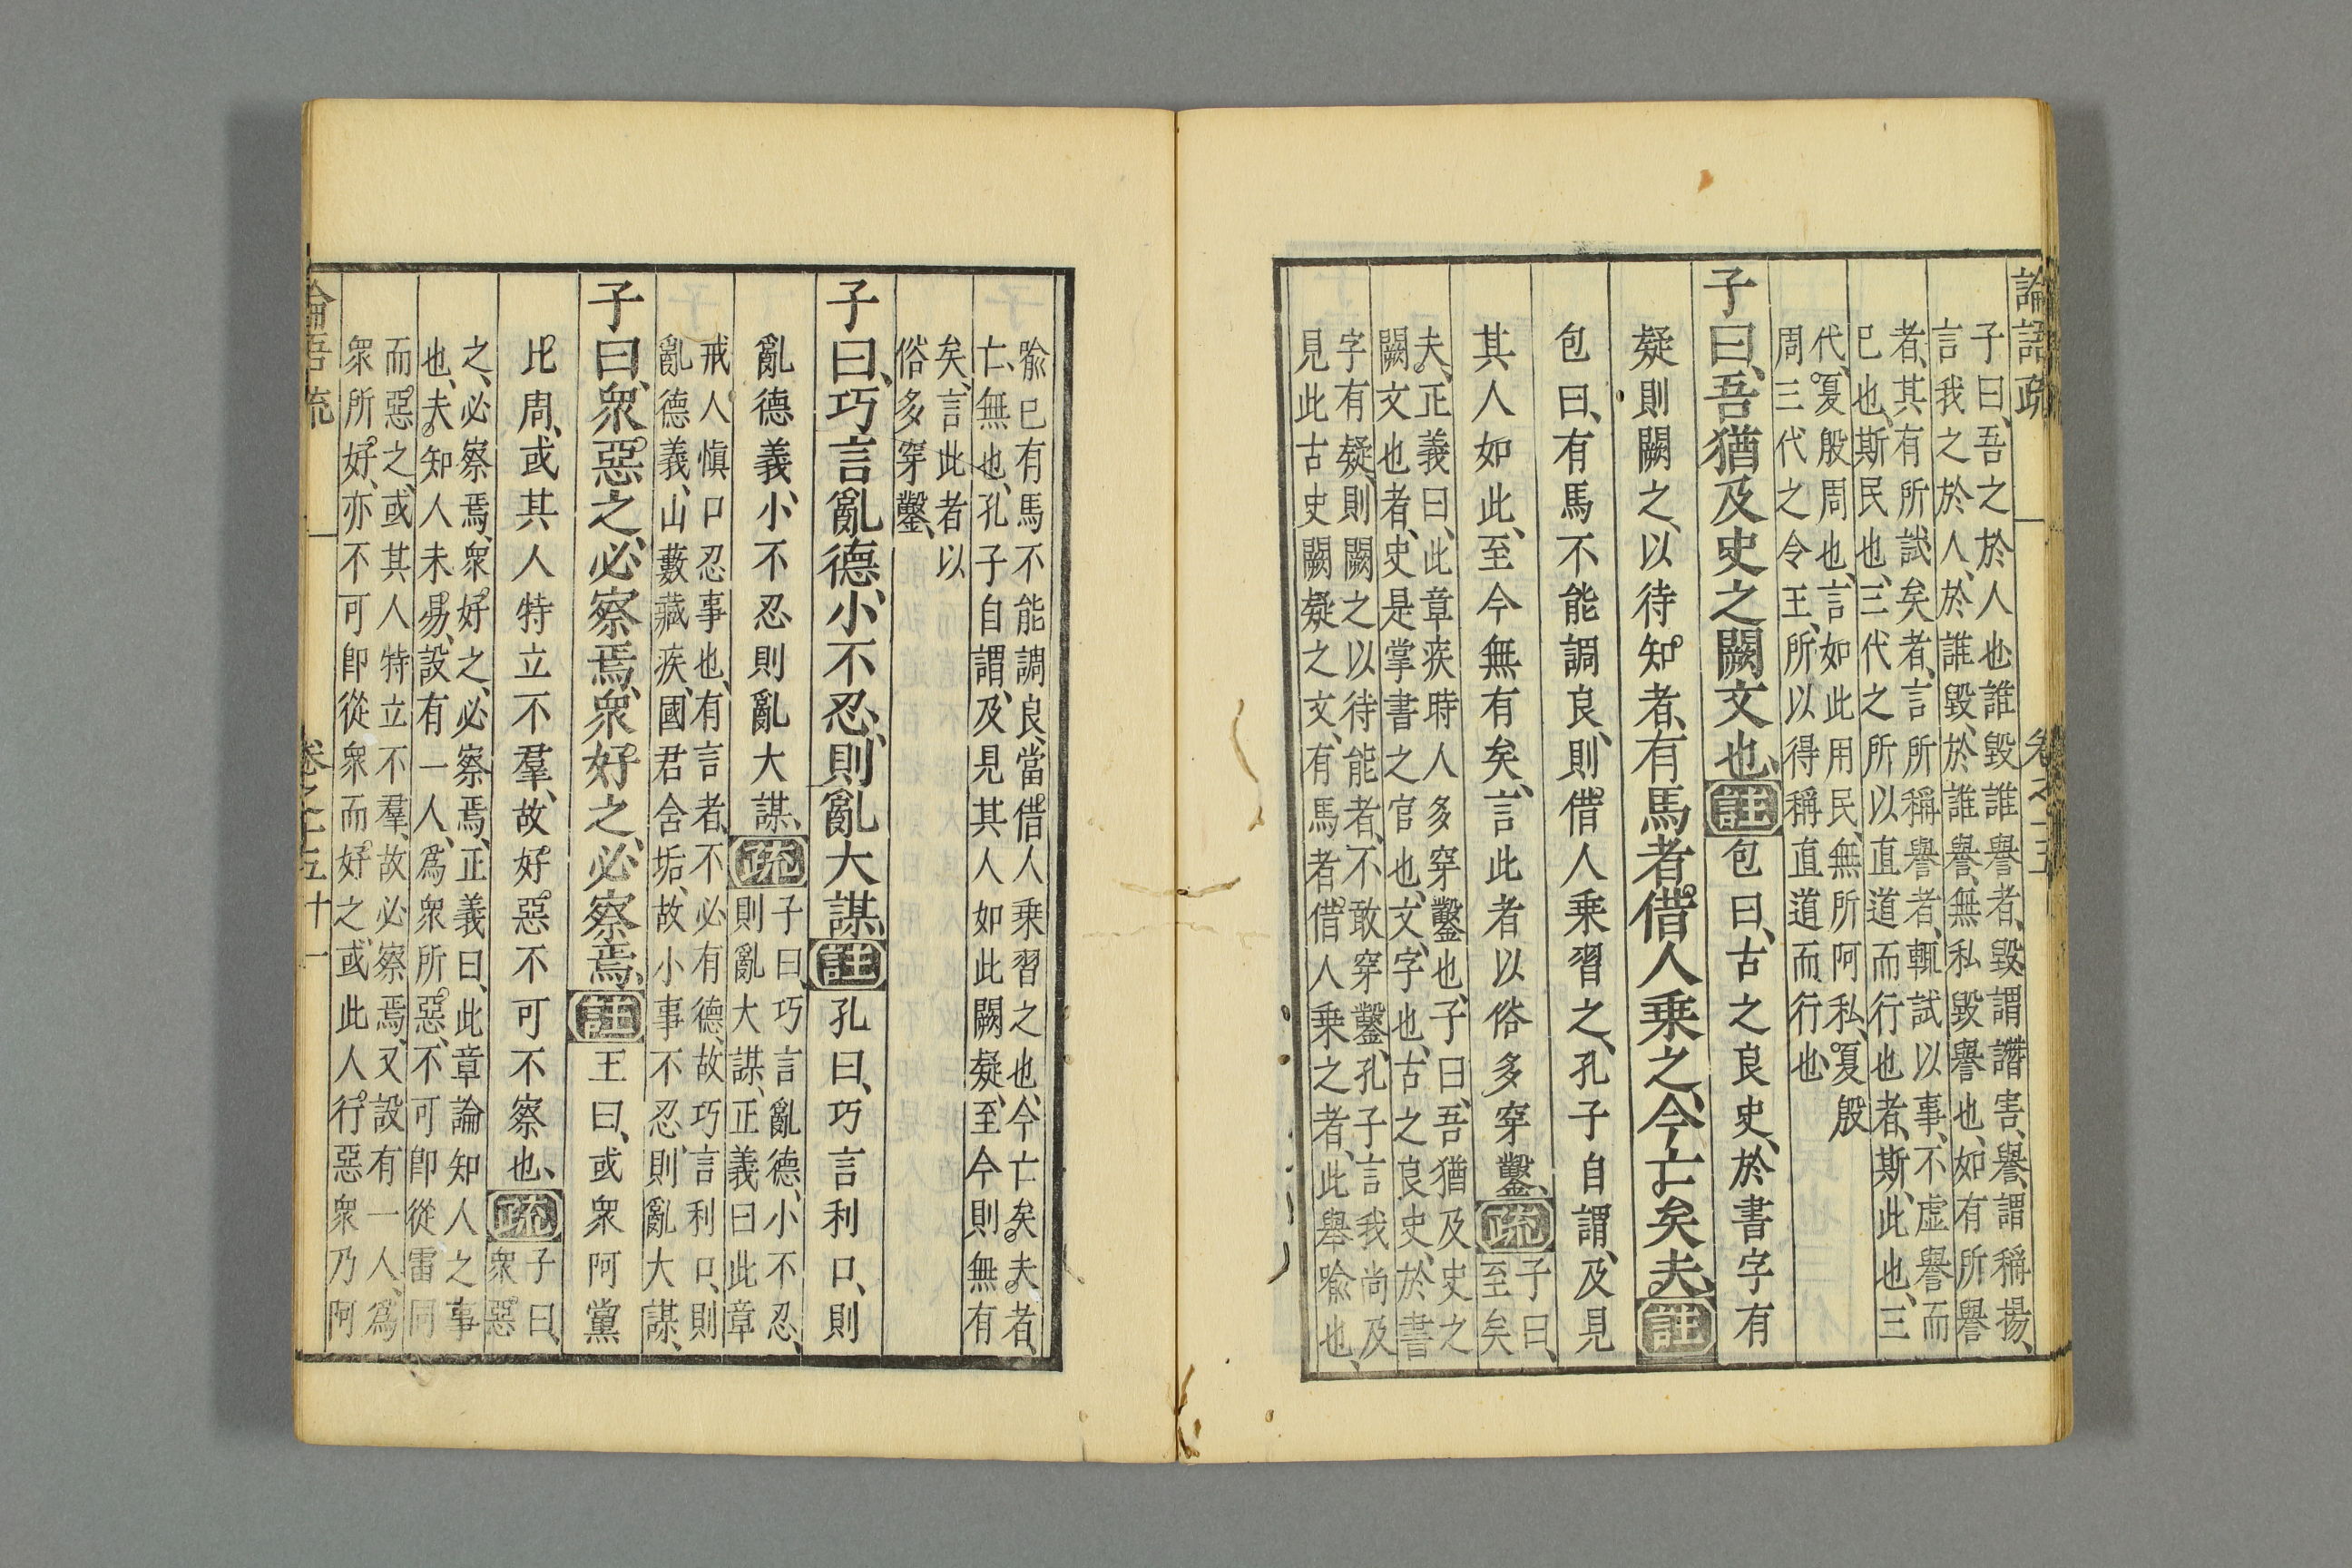 論語疏 卷之十五
子曰、吾之於人也誰毀誰譽者、毀、謂譖害、譽、謂稱揚、
言我之於人、於誰毀、於誰譽、無私毀譽也、如有所譽
者、其有所試矣者、言所稱譽者、輒試以事、不虛譽而
已也、斯民也、三代之所以直道而行也者、斯、此也、三
代、夏殷周也、言如此用民、無所阿私、夏殷
周三代之令王、所以得稱直道而行也、
子曰、吾猶及史之闕文也、註包曰、古之良史、於書字有
疑則闕之、以待知者、有馬者借人乘之、今亡矣夫、註
包曰、有馬不能調良、則借人乘習之、孔子自謂、及見
其人如此、至今無有矣、言此者以俗多穿鑿、疏
子曰、
至矣
夫、正義曰、此章疾時人多穿鑿也、子曰、吾猶及史之
闕文也者、史是掌書之官也、文、字也、古之良史、於書
字有疑、則闕之以待能者、不敢穿鑿、孔子言我尚及
見此古史闕疑之文、有馬者借人乘之者、此舉喻也、
喻己有馬不能調良、當借人乘習之也、今亡矣夫者、
亡、無也、孔子自謂、及見其人如此闕疑、至今則無有
矣、言此者以
俗多穿鑿、
子曰、巧言亂德、小不忍、則亂大謀、註孔曰、巧言利口、則
亂德義、小不忍則亂大謀、疏
子曰、巧言亂德、小不忍、
則亂大謀、正義曰此章
戒人慎口忍事也、有言者、不必有德、故巧言利口、則
亂德義、山藪藏疾、國君含垢、故小事不忍、則亂大謀、
子曰、衆惡之、必察焉、衆好之、必察焉、註王曰、或衆阿黨
比周、或其人特立不羣、故好惡不可不察也、疏
子曰、
衆惡
之、必察焉、衆好之、必察焉、正義曰、此章論知人之事
也、夫知人未易、設有一人、爲衆所惡、不可卽從雷同
而惡之、或其人特立不羣、故必察焉、又設有一人、爲
衆所好、亦不可卽從衆而好之、或此人行惡衆乃阿
論語疏 卷之十五 十一